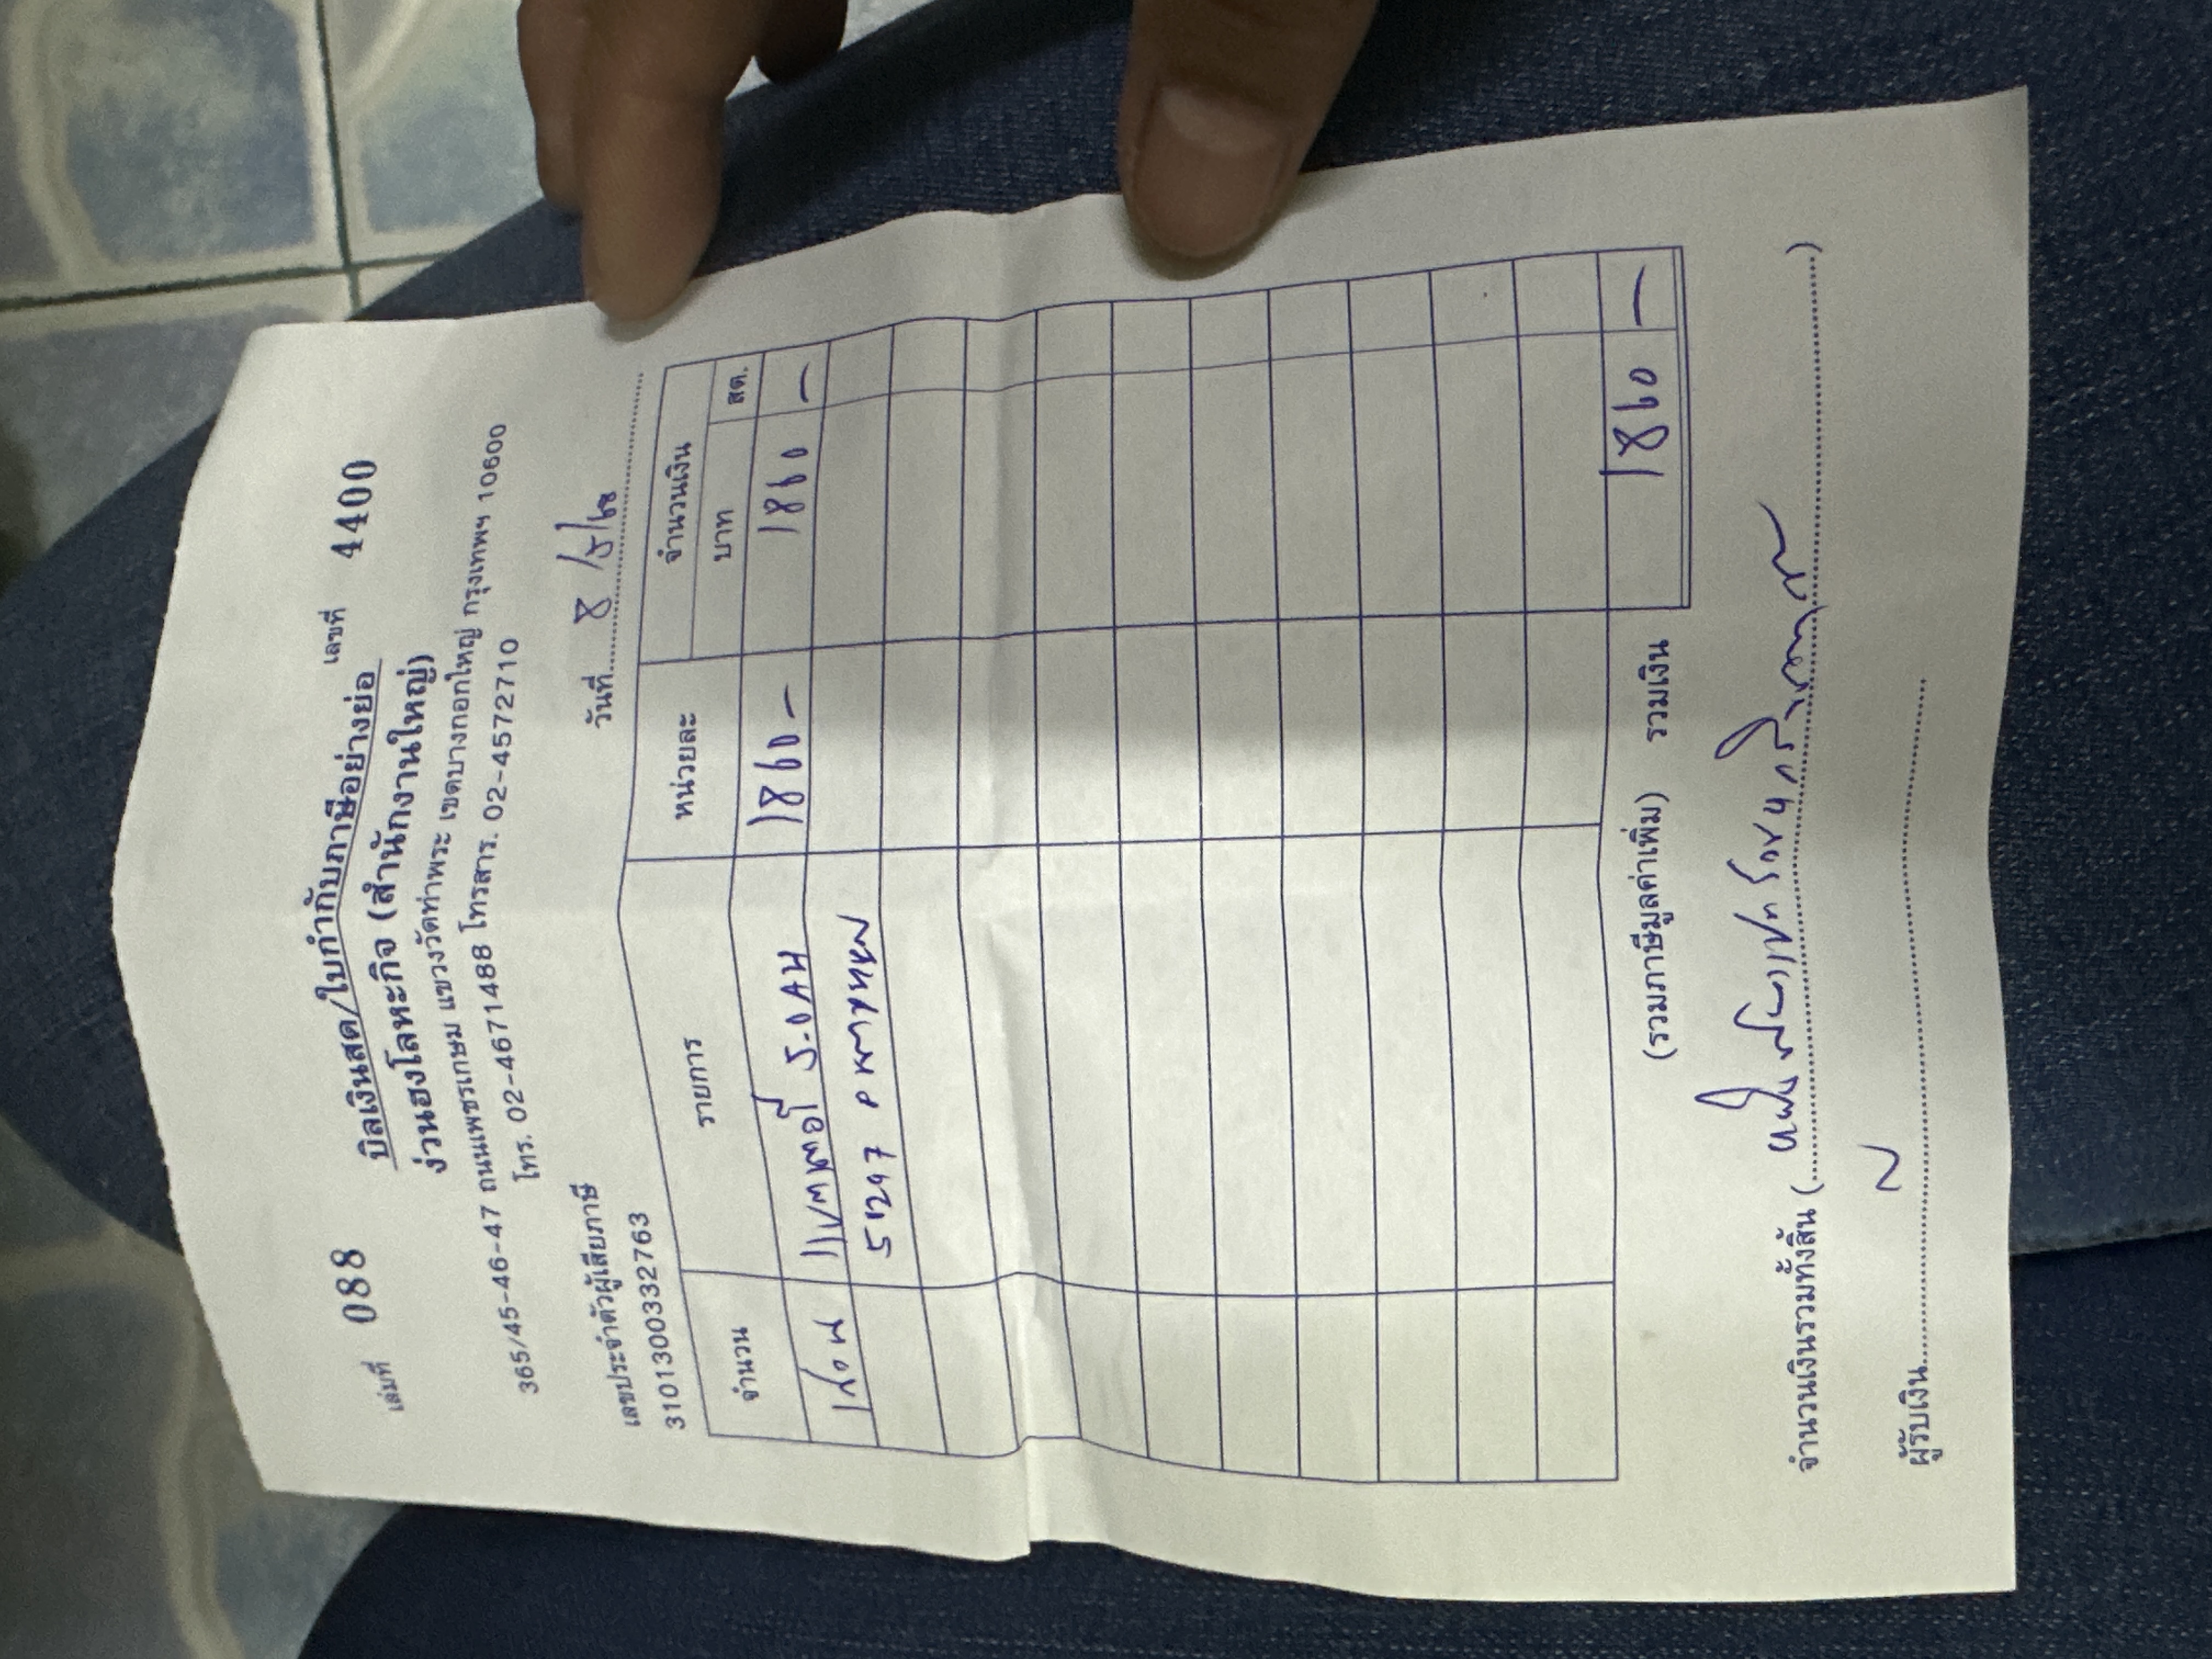 เล่มที่ 088 บิลเงินสด/ใบกำกับภาษีอย่างย่อ เลขที่ 4400
ง่วนฮงโลหะกิจ (สำนักงานใหญ่)
365/45-46-47 ถนนเพชรเกษม แขวงวัดท่าพระ เขตบางกอกใหญ่ กรุงเทพฯ 10600
โทร. 02-4671488 โทรสาร. 02-4572710
เลขประจำตัวผู้เสียภาษี
3101300332763
วันที่ 8
จำนวน รายการ หน่วยละ จำนวนเงิน
บาท สต.
แบตเตอรี่ 5.0AH 1860 - 1860 -
(รวมภาษีมูลค่าเพิ่ม) รวมเงิน 1860 -
จำนวนเงินรวมทั้งสิ้น (หนึ่งพันแปดร้อยหกสิบบาท)
ผู้รับเงิน